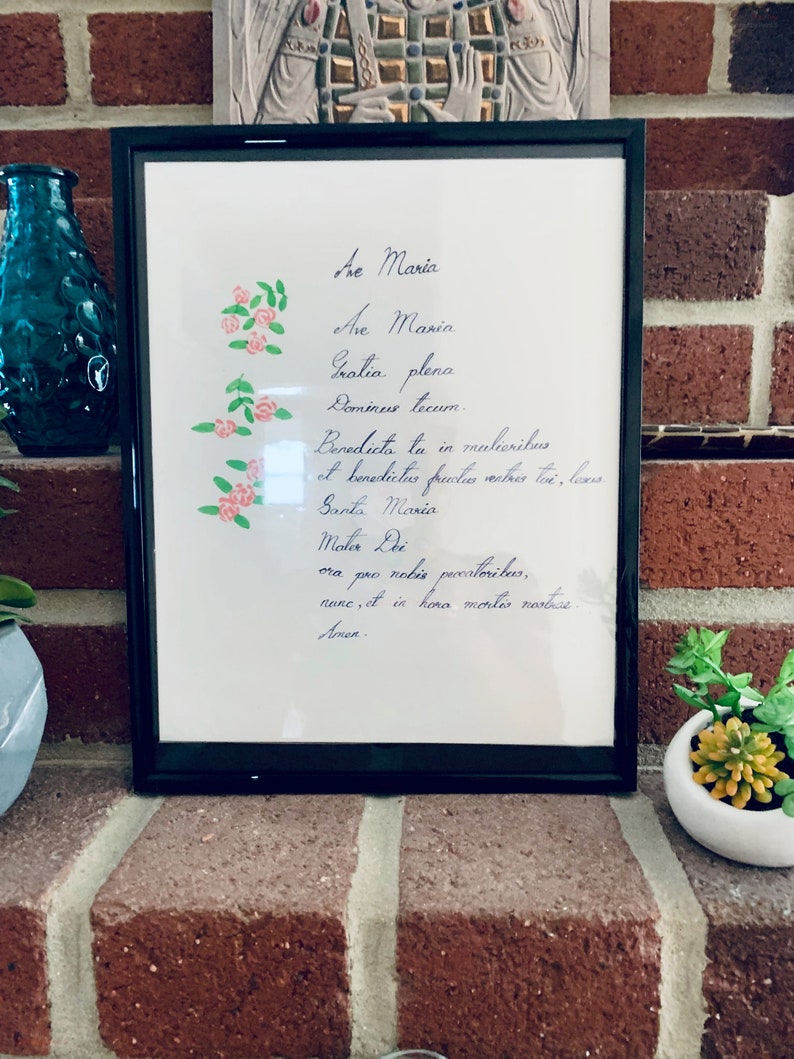 Ave Maria
Ave Maria
Gratia plena
Dominus tecum.
Benedicta tu in mulieribus
et benedictus fructus ventris tui, Iesus.
Santa Maria
Mater Dei
ora pro nobis peccatoribus,
nunc, et in hora mortis nostrae.
Amen.